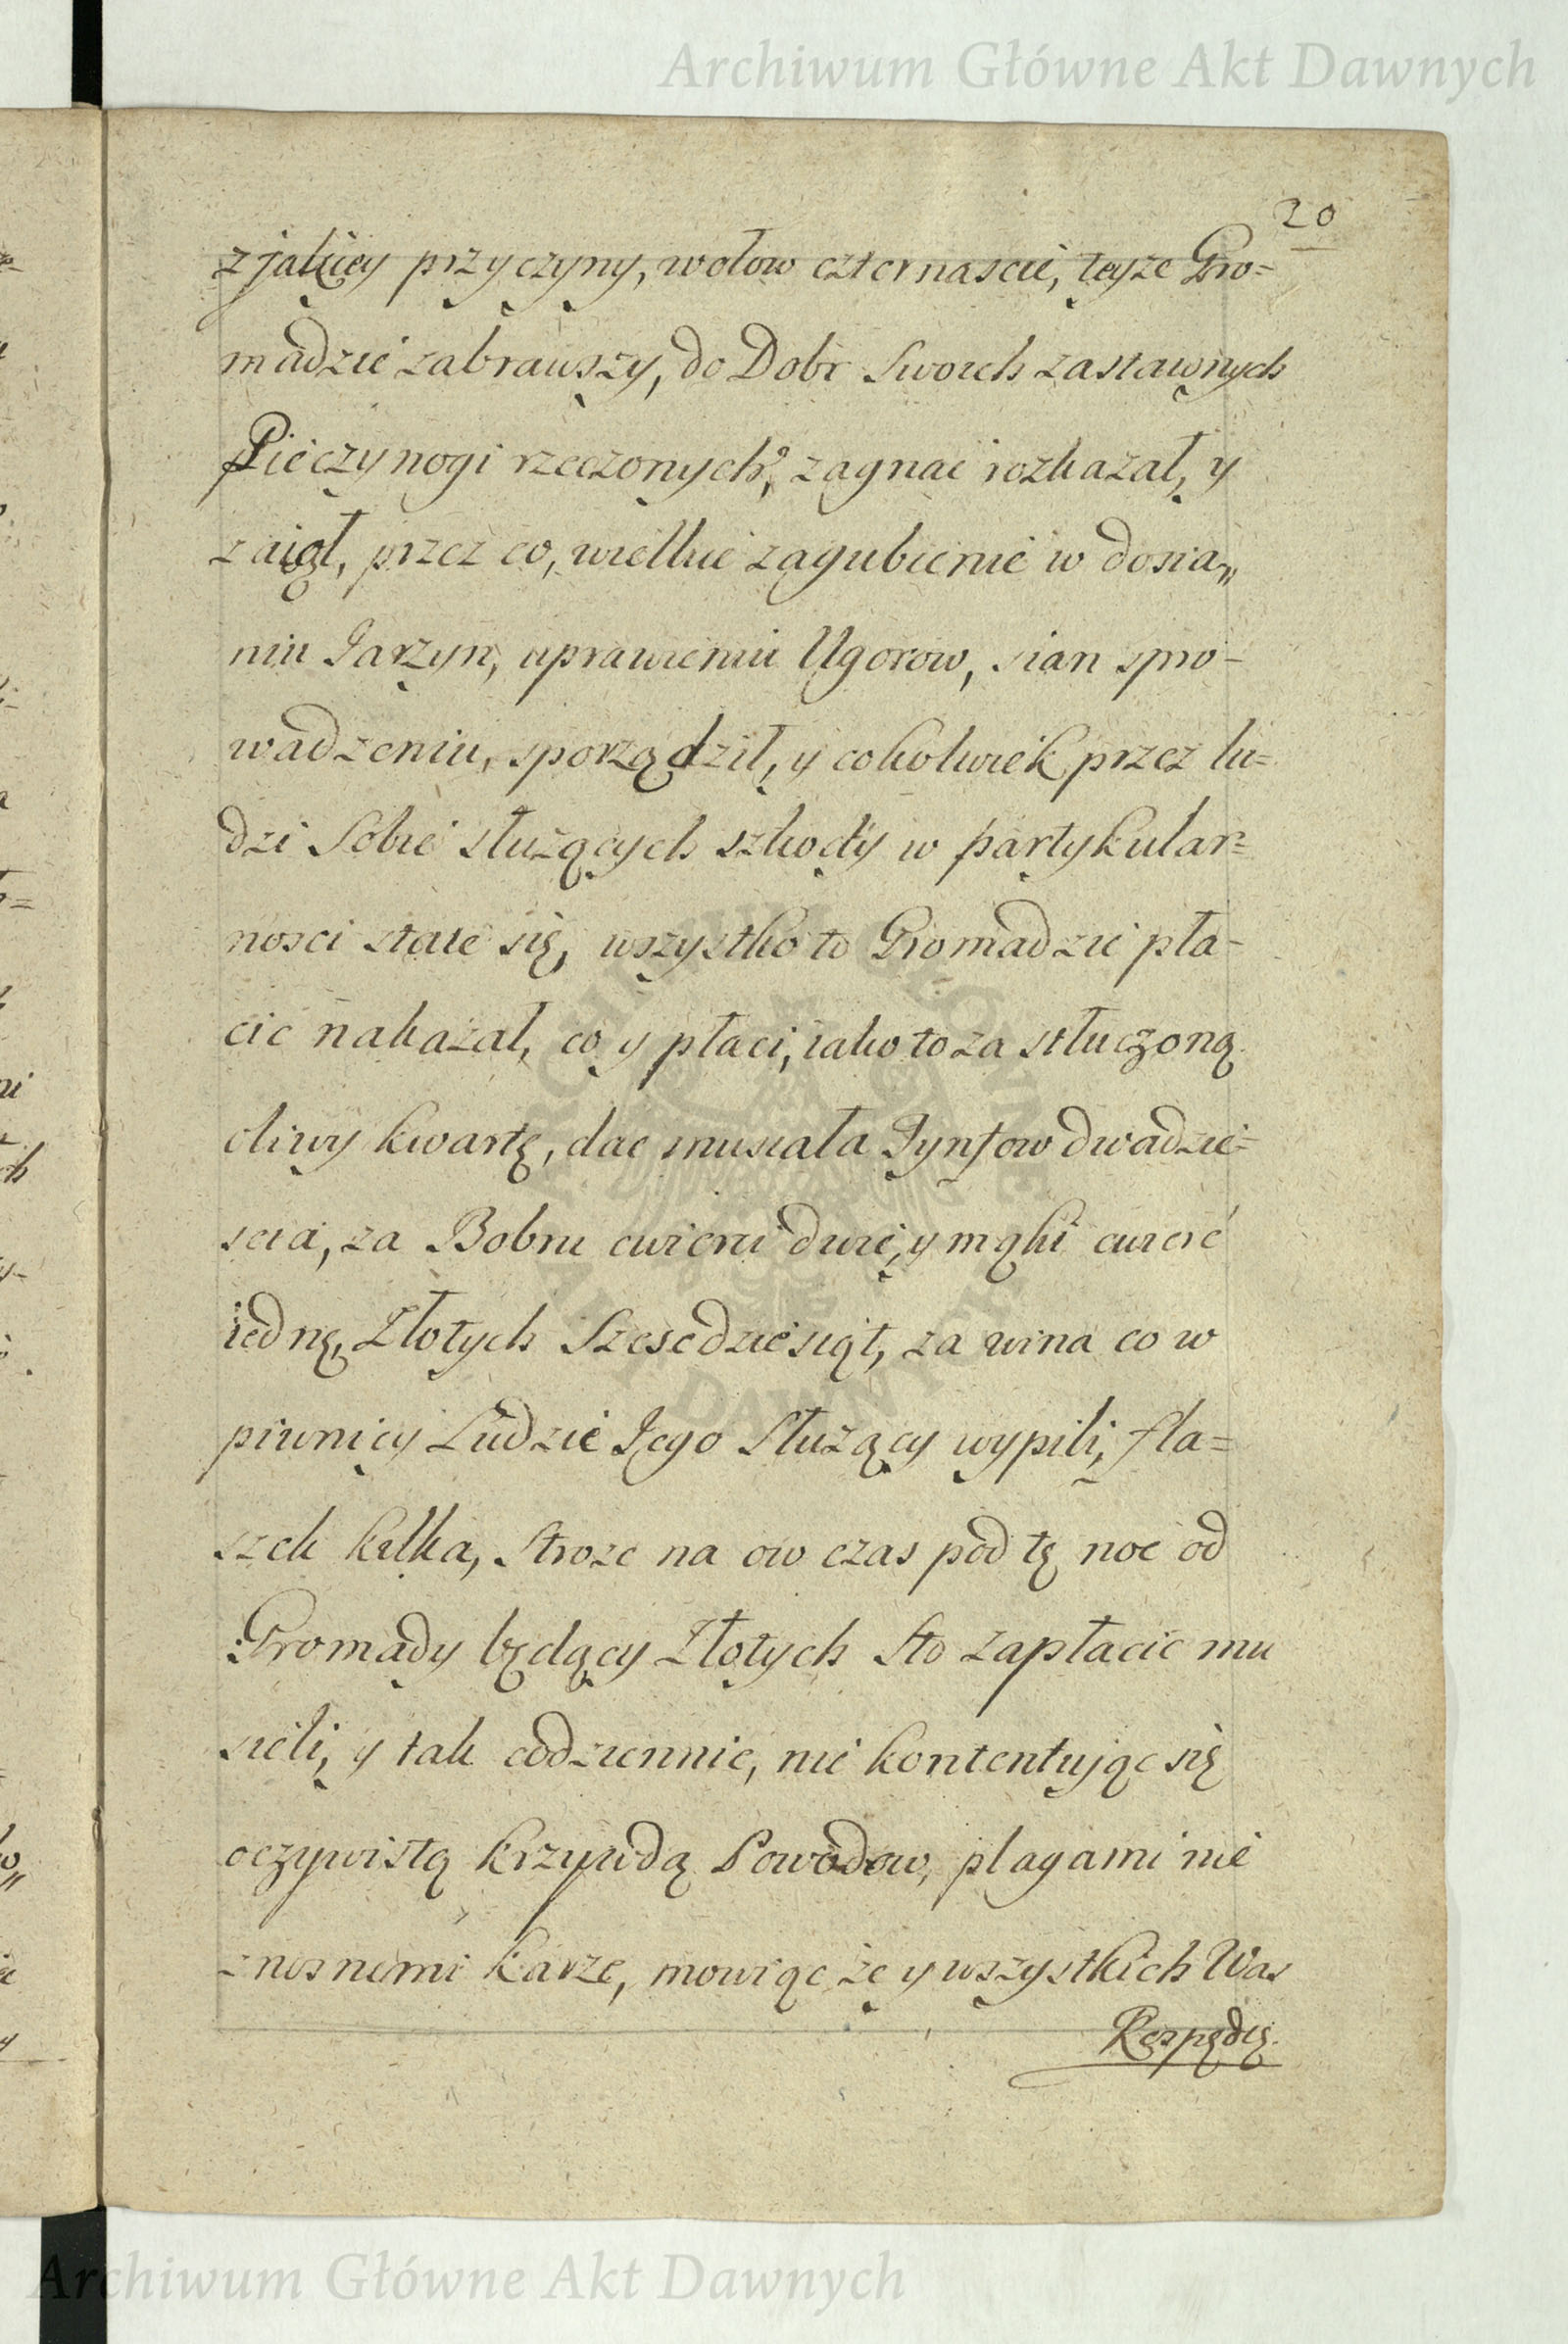 Archiwum Główne Akt Dawnych
20
z jakiey przyczyny, wołow czternascie, teyze Gro=
madzie zabrawszy, do Dobr Swoich zastawnych
Pieczynogi rzeczonych, zagnac rozkazał, y
zaiął, przez co, wielkie zagubienie w dosia„
niu Jarzyn, uprawieniu Ugorow, sian spro-
wadzeniu, sporządził, y cokolwiek przez lu=
dzi Sobie służących szkody w partykular=
nosci staie się, wszystko to Gromadzie pła-
cic nakazał, co y płaci, iako to za stłuczoną
oliwy kwartę, dac musiała Tynfow dwadzie=
scia, za Bobru cwierci dwie, y mąki cwierć
iednę, Złotych Szescdziesiąt, za wina co w
piwnicy Ludzie Jego Służący wypili, fla=
szek kilka, Stroze na ow czas pod tę noc od
Gromady będący Złotych Sto zapłacic mu
sieli, y tak codziennie, nie kontentując się
oczywistą krzywdą Powodow, plagami nie
znosnemi karze, mowiąc że y wszystkich Was
Rospędzę.
ARCHIWUM GŁÓWNE AKT DAWNYCH
Archiwum Główne Akt Dawnych